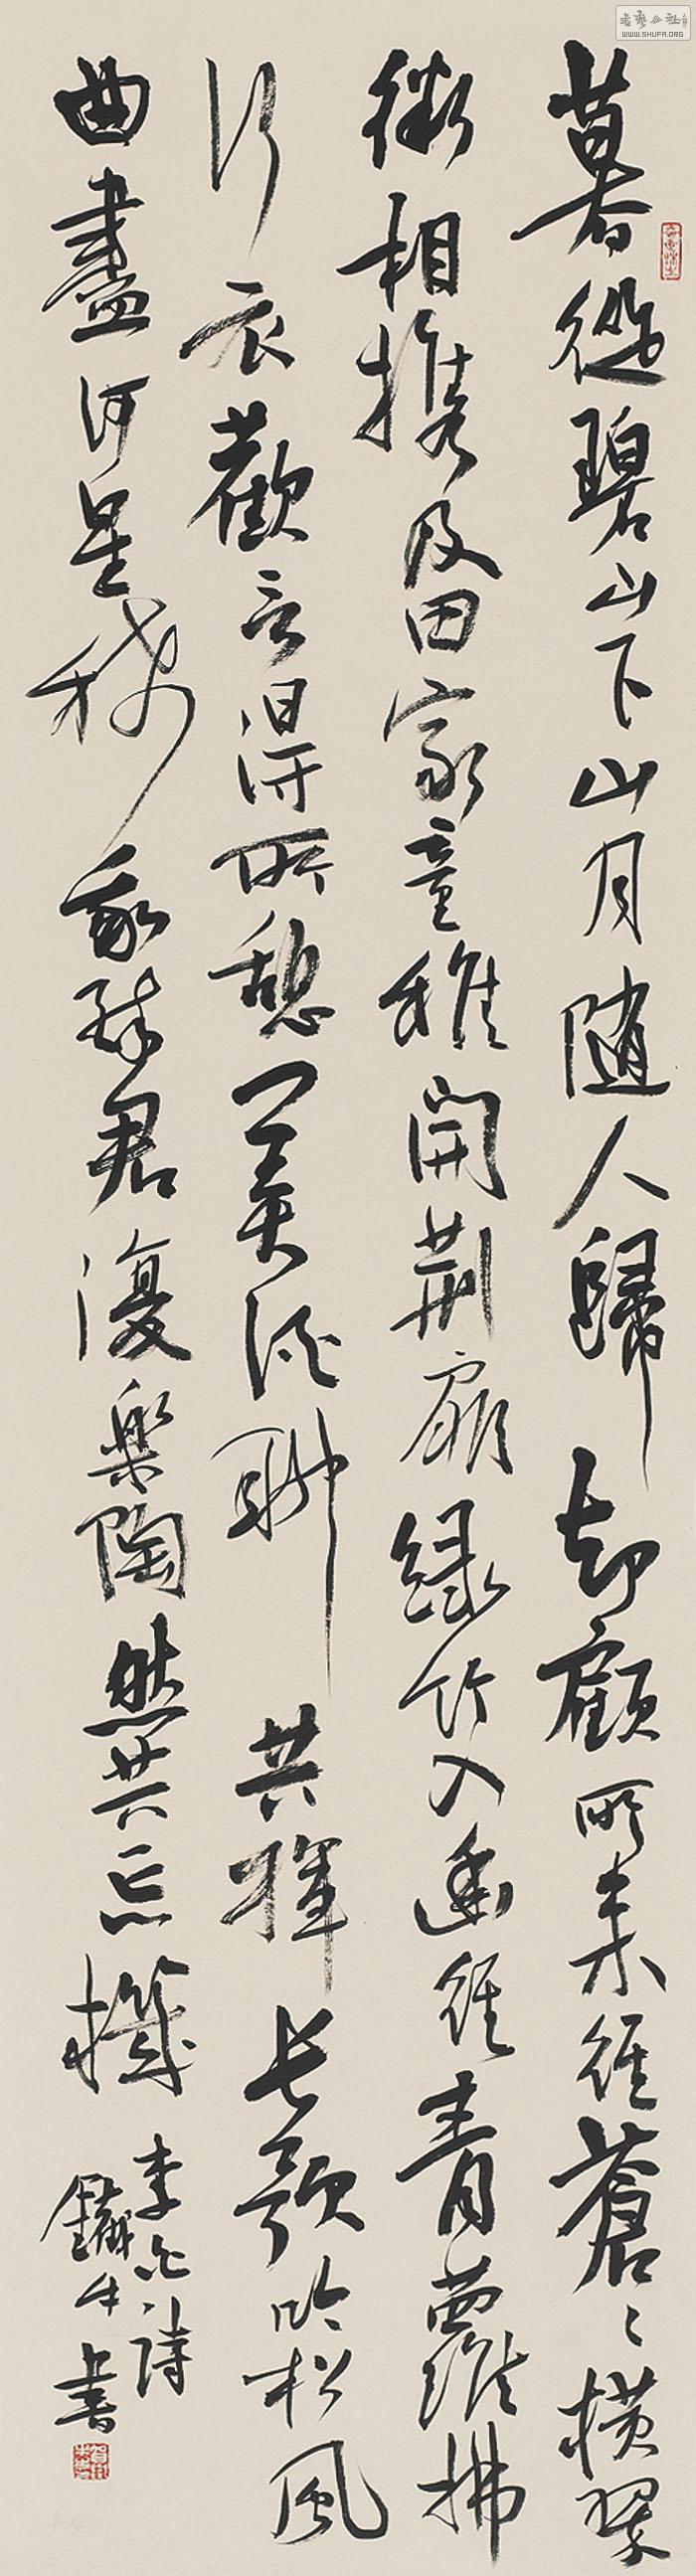 暮從碧山下山月隨人歸却顧所来徑蒼〻橫翠
微相携及田家童稚開荊扉綠竹入幽徑青蘿拂
行衣歡言得所憩美酒聊共揮長歌吟松風
曲盡河星稀我醉君復樂陶然共忘機
李白詩
鐵牛書
書藝公社
WWW.SHUFA.ORG